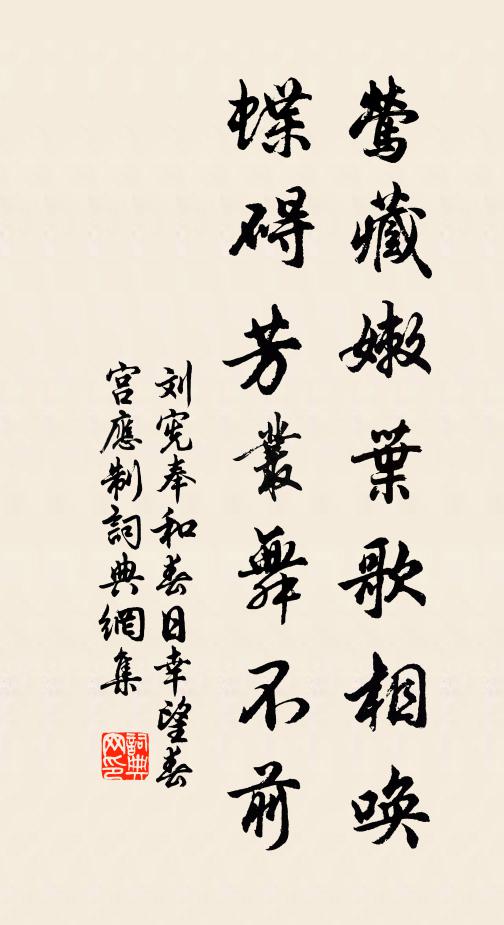 鶯藏嫩葉歌相喚
蝶碍芳叢舞不前
刘宪奉和春日幸望春
宫應制詞典網集
詞典網印